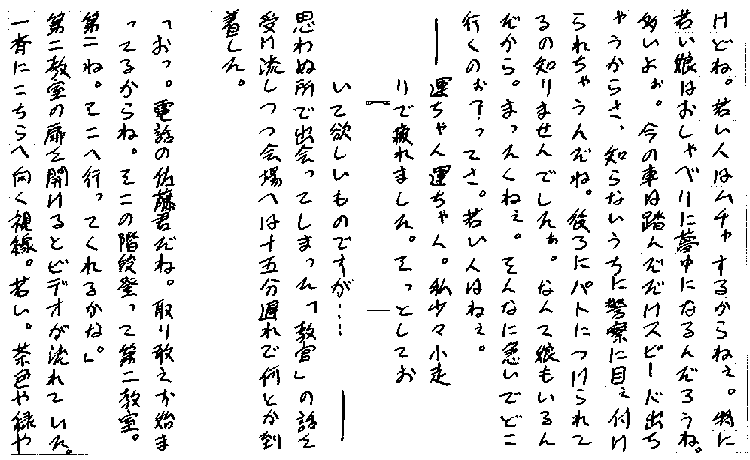 けどね。若い人はムチャするからねェ。特に
若い娘はおしゃべりに夢中になるんだろうね。
多いよォ。今の車は踏んだだけスピード出ち
ゃうからさ、知らないうちに警察に目ェ付け
られちゃうんだね。後ろにパトにつけられて
るの知りませんでしたぁ。なんて娘もいるん
だから。まったくねェ。そんなに急いでどこ
行くのォ?ってさ。若い人はねェ。
――運ちゃん運ちゃん。私少々小走
りで疲れました。そっとしてお
いて欲しいものですが…――
思わぬ所で出会ってしまった「教官」の話を
受け流しつつ会場へは十五分遅れで何とか到
着した。
「おっ。電話の佐藤君だね。取り敢えず始ま
ってるからね。そこの階段登って第二教室。
第二ね。そこへ行ってくれるかな。」
第二教室の扉を開けるとビデオが流れていた。
一斉にこちらへ向く視線。若い。茶色や緑や